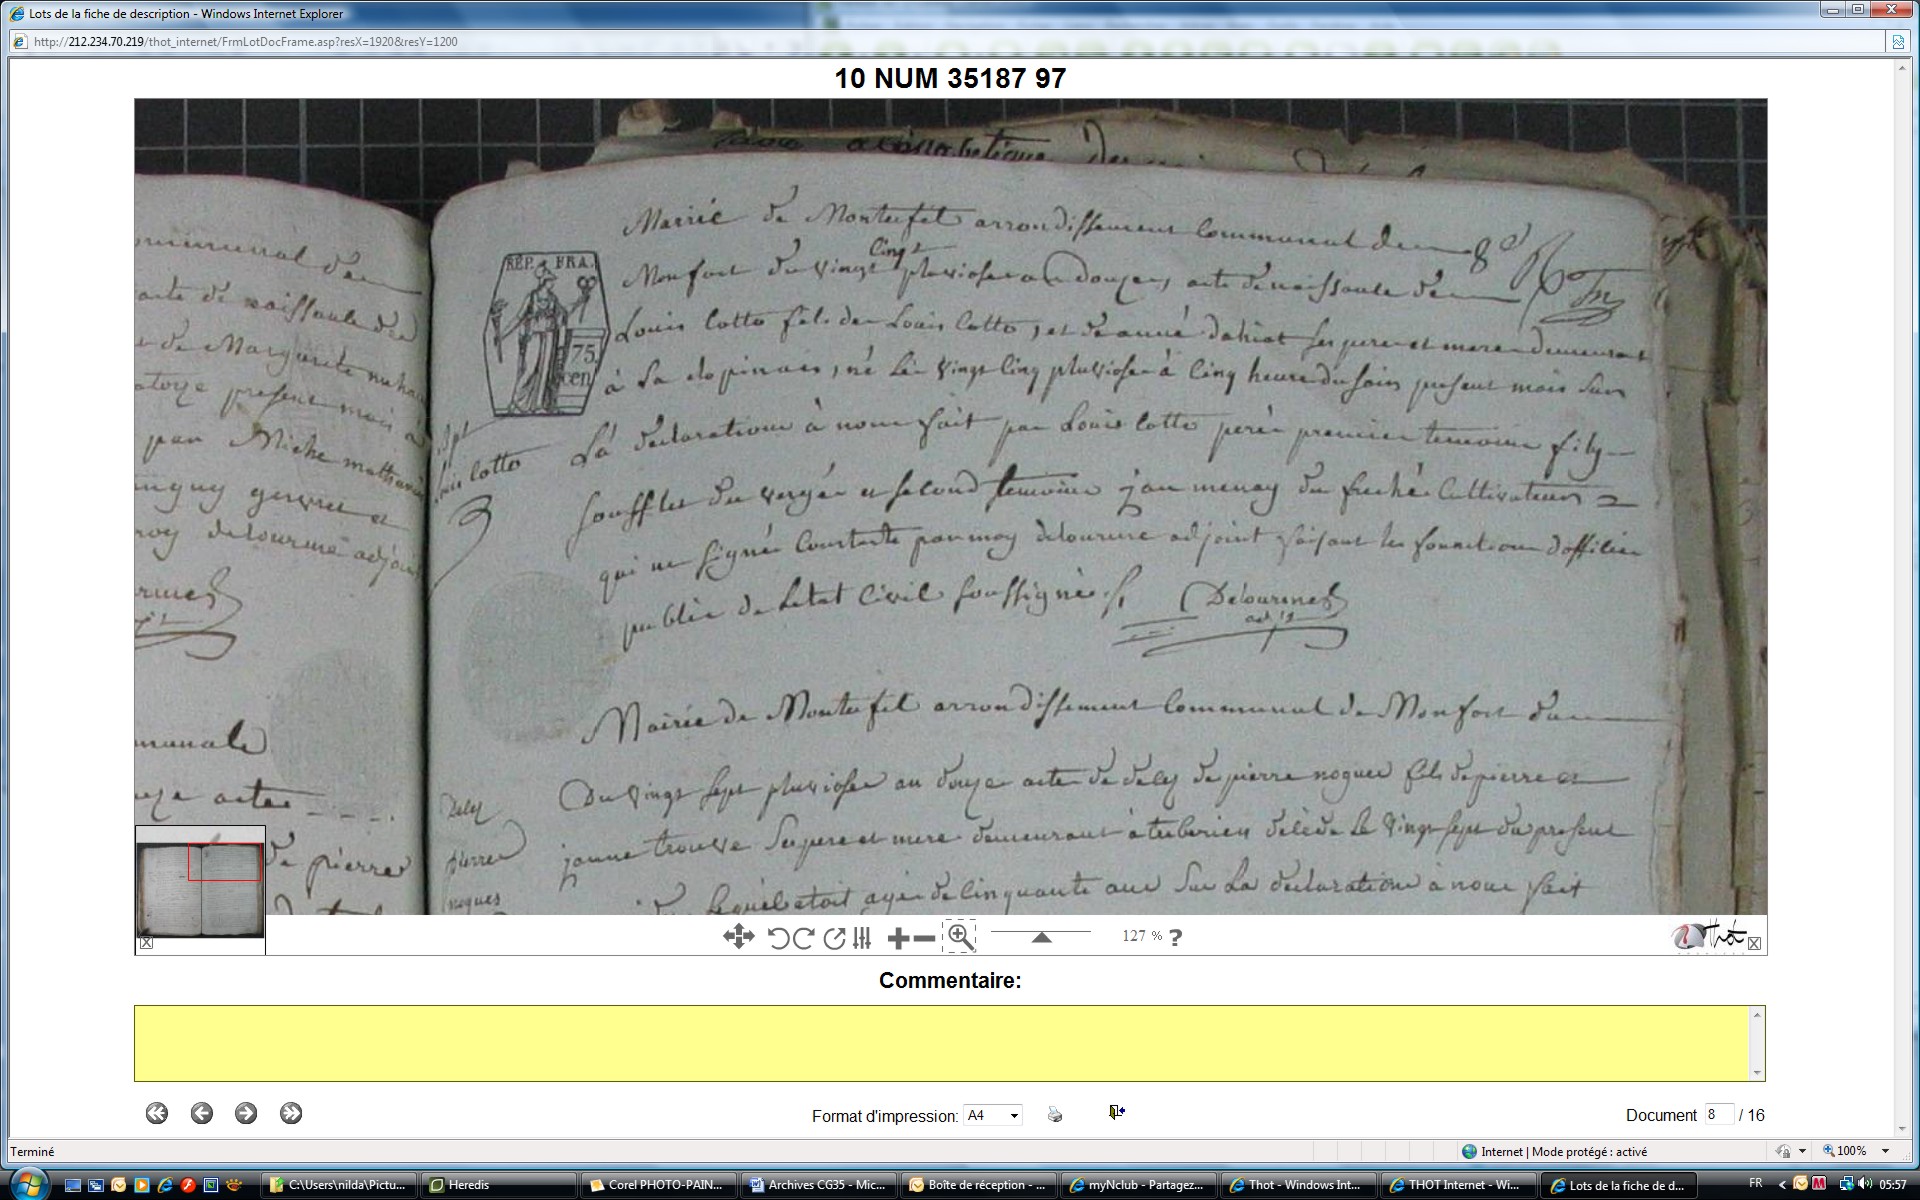 Lots de la fiche de description - Windows Internet Explorer
http://212.234.70.219/thot_internet/FrmLotDocFrame.asp?resX=1920&resY=1200
10 NUM 35187 97
Mairie de Monterfil arrondissement Communal de
8e
Monfort du vingt cinq pluviose an douze, acte de naissance de
REP. FRA.
75 cen
Louis Cotto fils de Louis Cotto, et de anne dahiot ses pere et mere demeurant
à la clopinais, né le vingt cinq pluviose à cinq heure du soir present mois sur
La declaration à nous fait par Louis Cotto père premier temoin
Louis Cotto
soufflet du verger et second temoin jan menay du cultivateurs
qui ne signe constaté par moy delourme adjoint faisant les fonctions d'officier
public de letat civil soussigné
Delourmes
adjt
Mairie de Monterfil arrondissement Communal de Monfort
Du vingt sept pluviose an douze acte de deces de pierre nogues fils de pierre et
janne trouve ses pere et mere demeurant à décédé Le vingt sept du present
lequel etoit agé de cinquante ans Sur La declaration à nous fait
Deces
pierre
nogues
communal
acte de naissance de
et de Margueritte
present mois à
par Michel
gervret et
delourme adjoint
acte
de pierre
127 % ?
Thot
Commentaire:
Format d'impression: A4
Document 8 / 16
Terminé
Internet | Mode protégé : activé
100%
C:\Users\nilda\Pictu...
Heredis
Corel PHOTO-PAIN...
Archives CG35 - Mic...
Boîte de réception - ...
myNclub - Partagez...
Thot - Windows Int...
THOT Internet - Wi...
Lots de la fiche de d...
FR
05:57